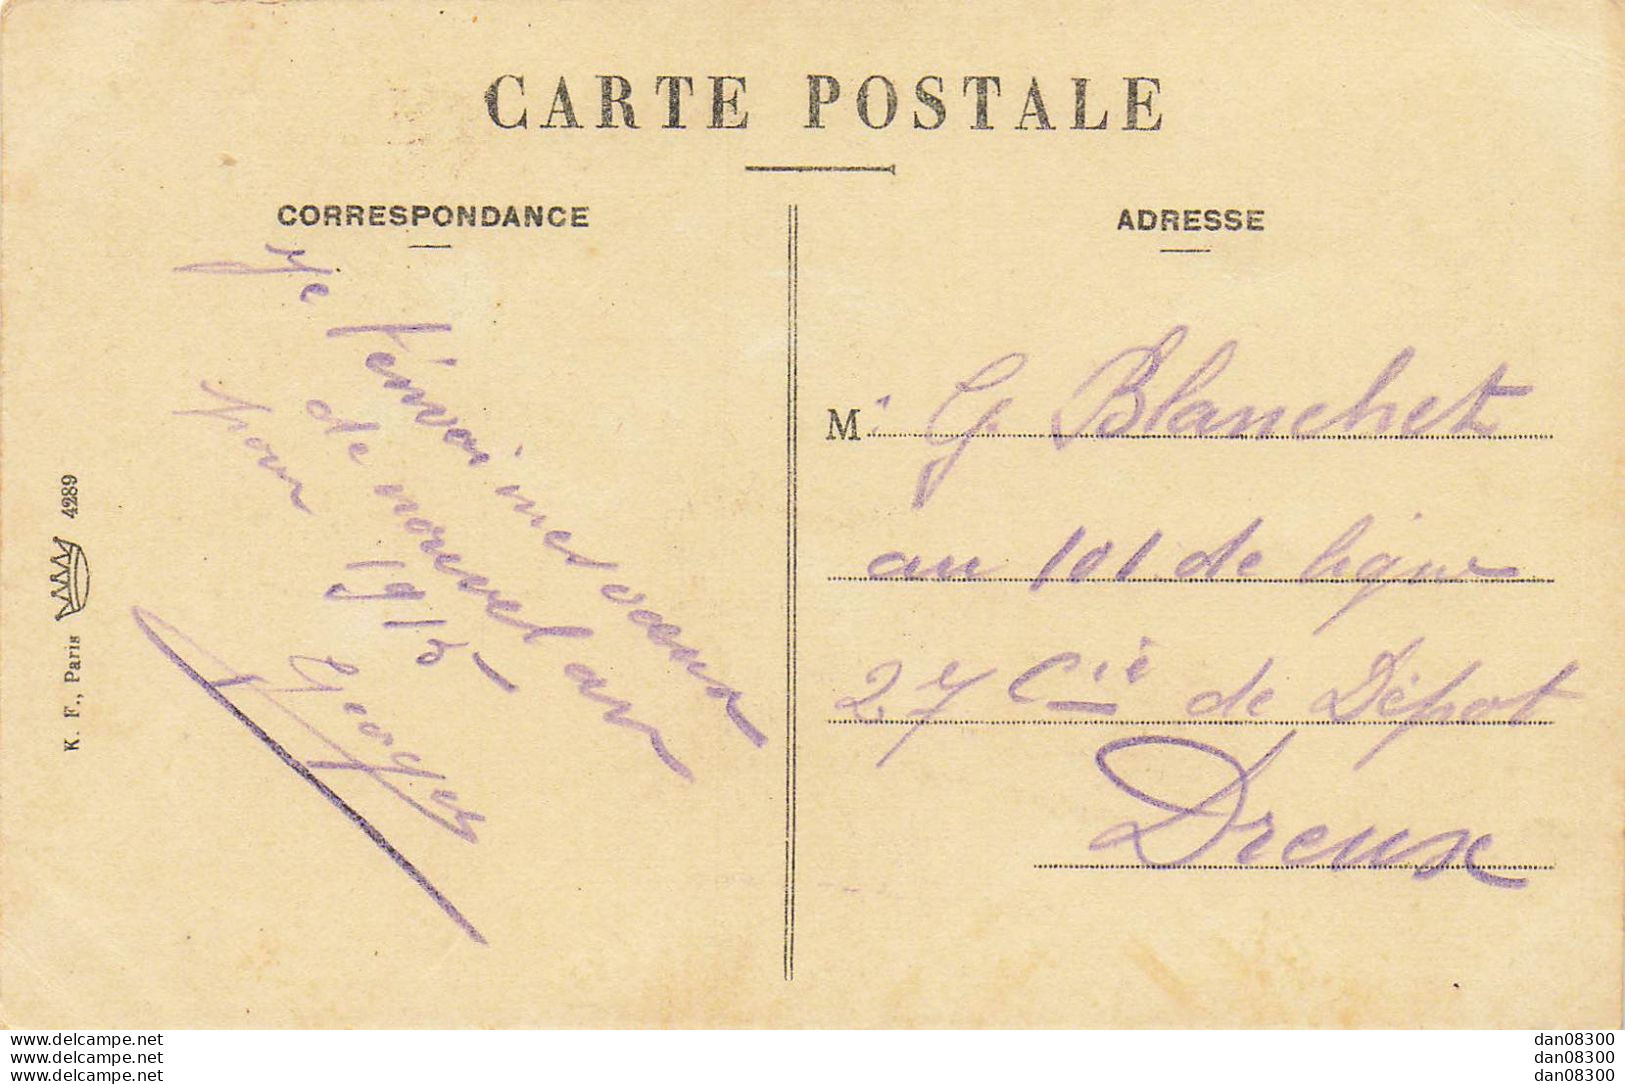 CARTE POSTALE
CORRESPONDANCE
Je t'envoi mes vœux
de nouvel an
pour 1915
Georges
ADRESSE
M. G. Blanchet
au 101 de ligne
27 Cie de Dépot
Dreux
K. F., Paris 4289
www.delcampe.net
www.delcampe.net
www.delcampe.net
dan08300
dan08300
dan08300